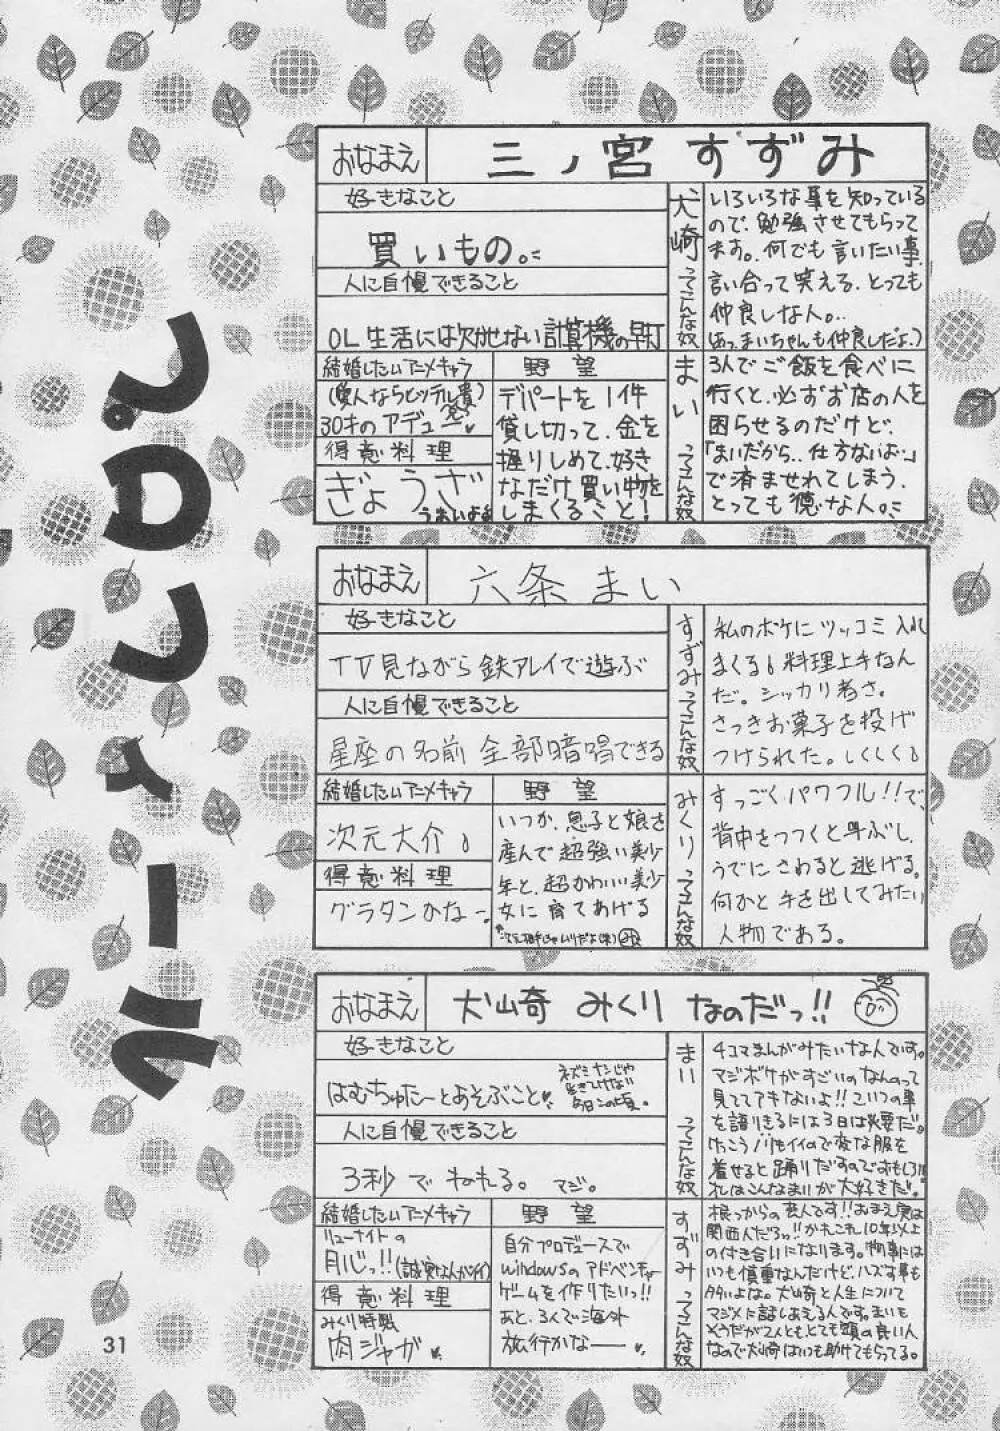 ぷろフィール
おなまえ
三ノ宮すずみ
好きなこと
買いもの。
人に自慢できること
OL生活には欠かせない計算機の早打
結婚したいアニメキャラ
(愛人ならヒッテル貴)
30才のアデュー
得意料理
ぎょうざ
うまいよ
野望
デパートを1件
貸し切って、金を
握りしめて、好き
なだけ買い物を
しまくること!
犬崎ってこんな奴
いろいろな事を知っている
ので、勉強させてもらって
ます。何でも言いたい事、
言い合って笑える、とっても
仲良しな人。
(あっ、まいちゃんも仲良しだよ。)
まいってこんな奴
3人でご飯を食べに
行くと、必ずお店の人を
困らせるのだけど、
「まいだから、仕方ないよ。」
で済ませれてしまう、
とっても徳な人。
おなまえ
六条まい
好きなこと
TV見ながら鉄アレイで遊ぶ
人に自慢できること
星座の名前 全部暗唱できる
結婚したいアニメキャラ
次元大介。
得意料理
グラタンかなー。
野望
いつか、息子と娘を
産んで超強い美少
年と、超かわいい美少
女に育てあげる
すずみってこんな奴
私のボケにツッコミ入れ
まくる。料理上手なん
だ。シッカリ者さ。
さっきお菓子を投げ
つけられた。しくしく。
みくりってこんな奴
すっごくパワフル!!で、
背中をつつくと叫ぶし、
うでにさわると逃げる。
何かと手を出してみたい
人物である。
おなまえ
犬山奇 みくり なのだっ!!
好きなこと
はむちゅたーとあそぶこと
ネズミナシじゃ
生きてけない
毎日この頃。
人に自慢できること
3秒でねれる。マジ。
結婚したいアニメキャラ
リューナイトの
月心っ!!(誠実な人がイイ)
得意料理
みくり特製
肉ジャガ
野望
自分プロデュースで
windowsのアドベンチャー
ゲームを作りたいっ!!
あと、3人で海外
旅行かなーー。
まいってこんな奴
4コマまんがみたいな人です。
マジボケがすごいのなんのって
見ててあきないよ!!こいつの事
を語りきるには3日は必要だ。
けっこうノリもイイので変な服を
着せると踊りだすのでおもしろい。
おれはこんなまいが大好きだ。
すずみってこんな奴
根っからの芸人です!!おまえ実は
関西人だろっ!!かれこれ10年以上
の付き合いになります。物事には
いつも慎重なんだけど、ハズす事も
多いよな。犬崎と人生について
マジメに話しあえる人です。まいも
そうだが2人ともとても頭の良い人
なので犬崎はいつも助けてもらってる。
31